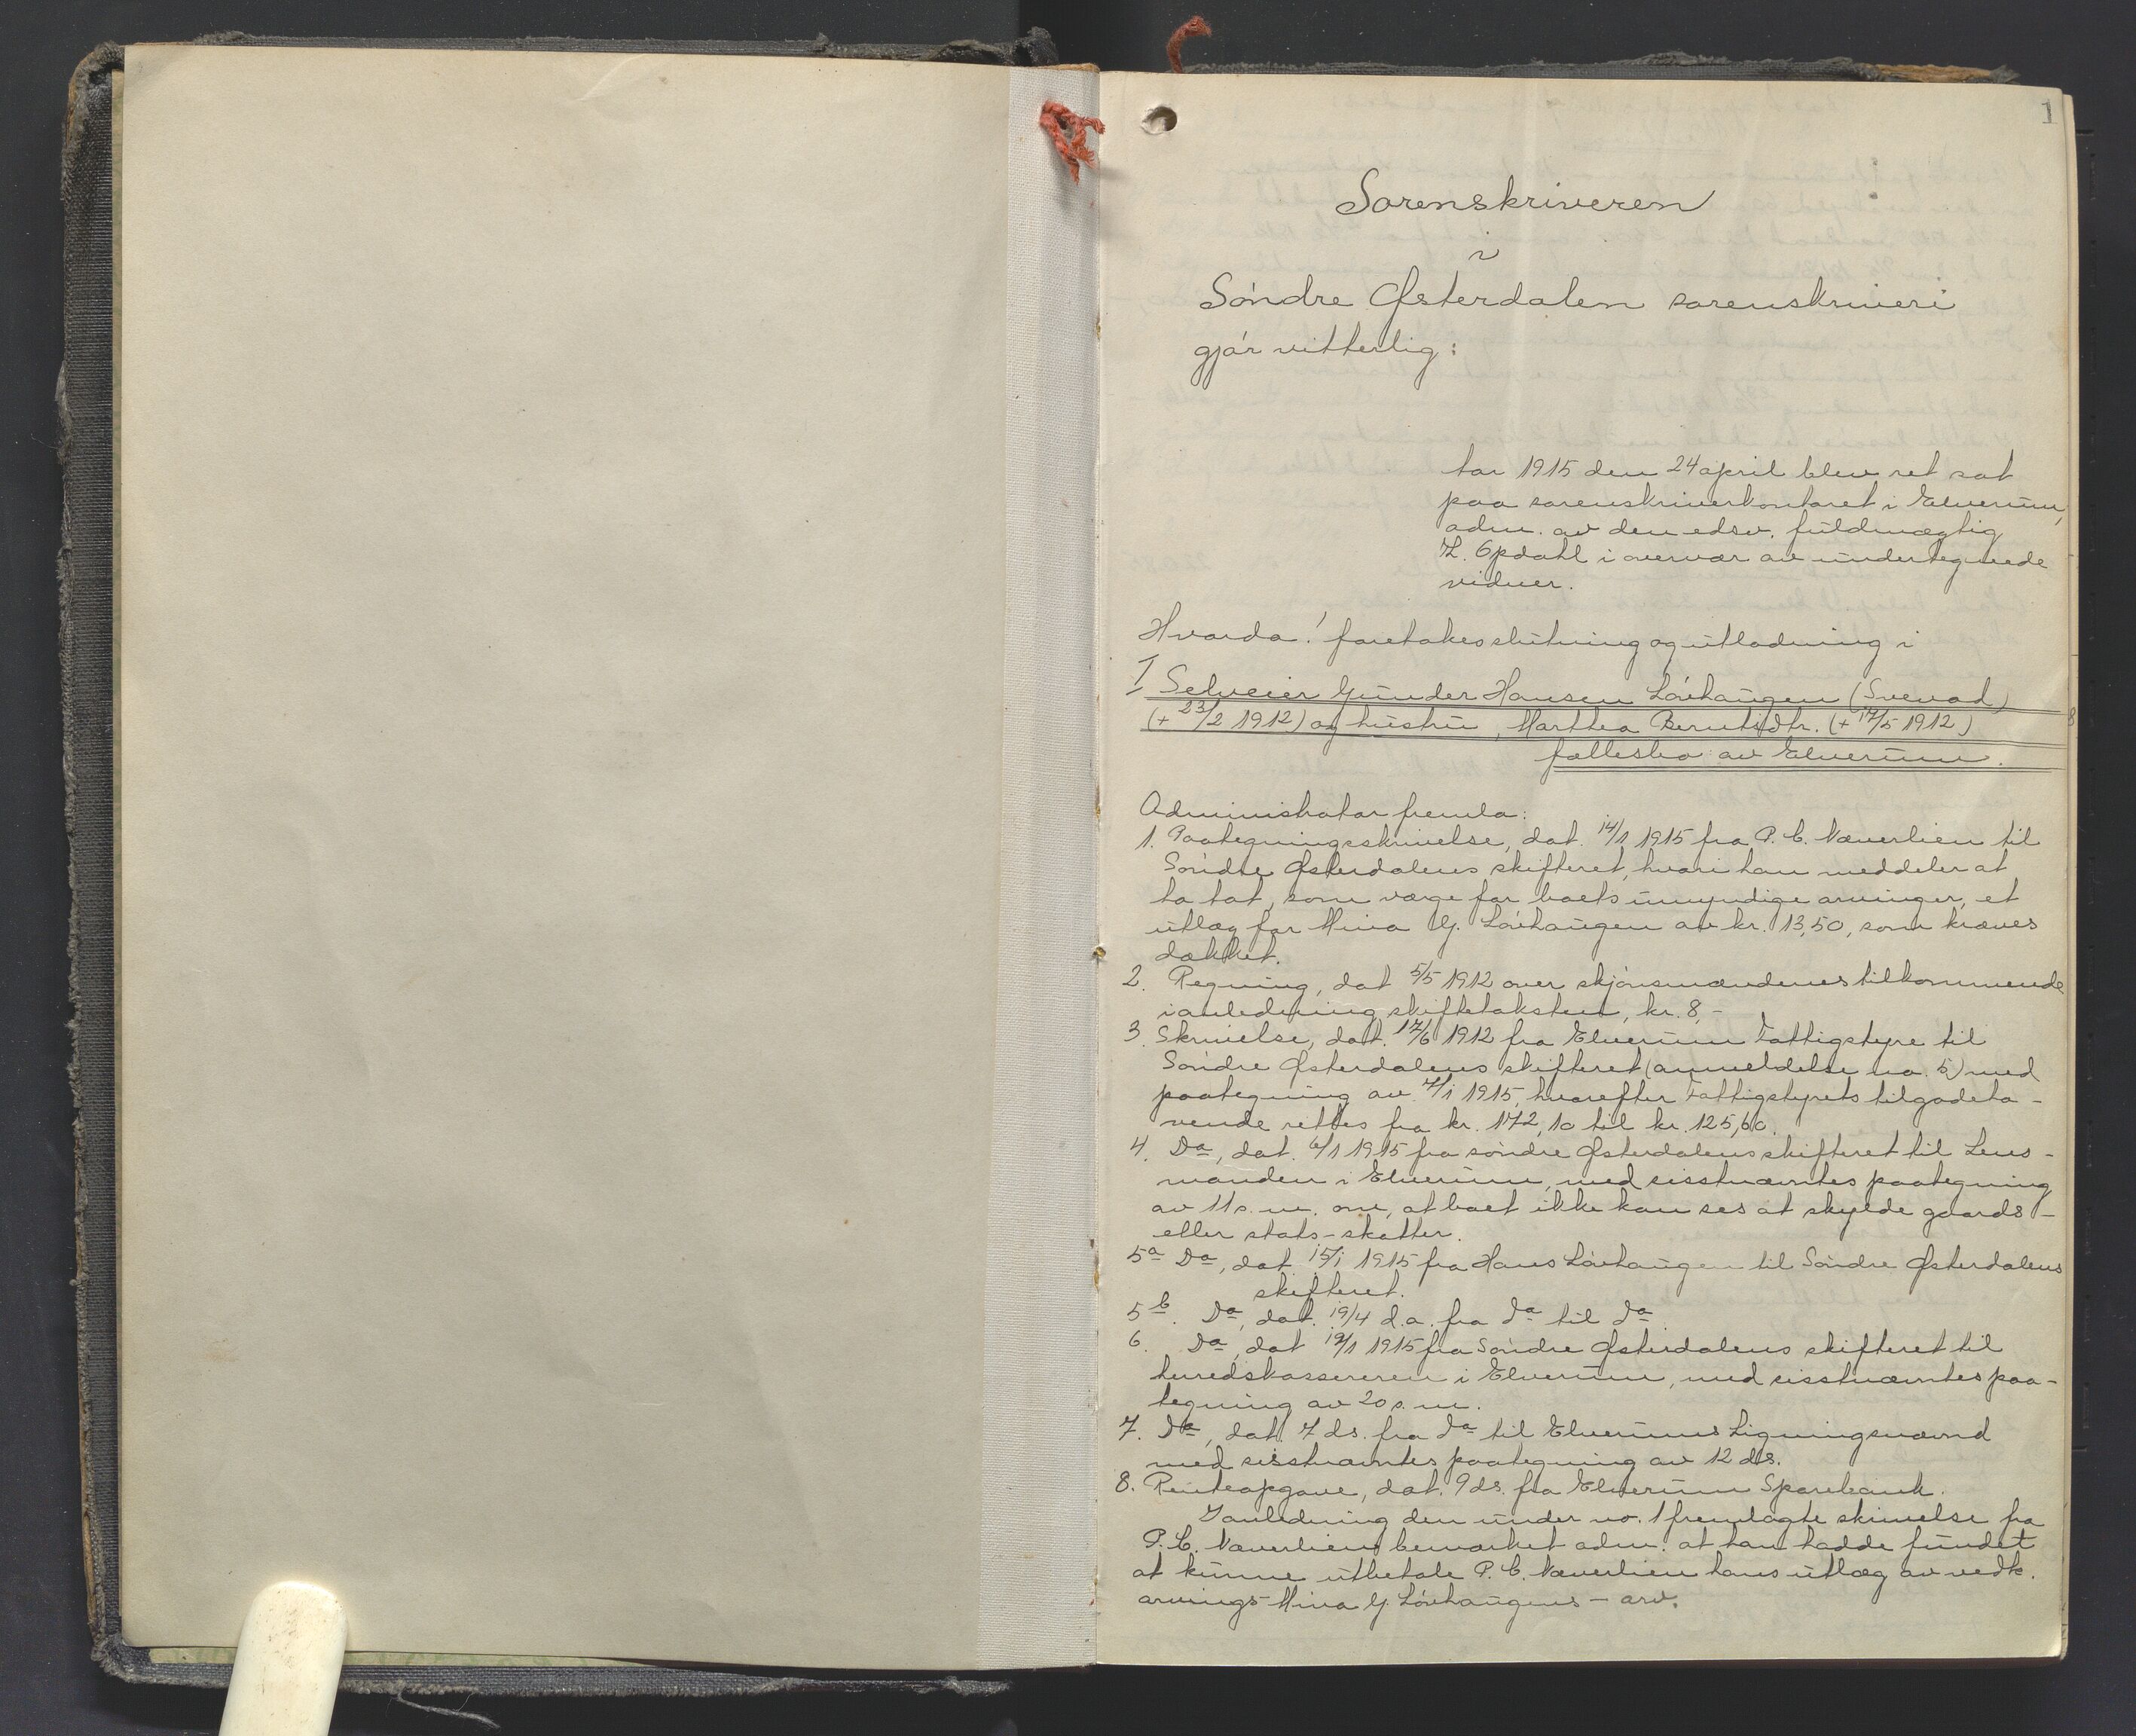 1
Sorenskriveren
i
Söndre Østerdalen sorenskriveri
gjør vitterlig:
Aar 1915 den 24 april blev ret sat
paa sorenskriverkontoret i Elverum,
adm. av den edsv. fuldmægtig
H. Opdahl i overvær av undertegnede
vidner.
Hvorda! foretokes slutning og utlodning i
I Selveier Gunder Hansen Lövhaugen (Svevad)
(+ 23/2 1912) og hustru, Marthea Berntsdtr. (+ 17/5 1912)
fællesbo av Elverum.
Administrator fremla:
1. Paategningsskrivelse, dat. 14/1 1915 fra P. C. Næverlien til
Söndre Østerdalens skifteret, hvori han meddeler at
ha hat, som værge for boets umyndige arvinger, et
utlæg for Mina G. Lövhaugen av kr. 13,50, som kræves
dækket.
2. Regning, dat 5/5 1912 over skjönsmændenes tilkommende
i anledning skiftetaksten, kr. 8,-
3. Skrivelse, dat. 17/6 1912 fra Elverum Fattigstyre til
Söndre Østerdalens skifteret (anmeldelse no. 5) med
paategning av 7/1 1915, hvorefter Fattigstyrets tilgodeha-
vende rettes fra kr. 172,10 til kr. 125,60.
4. Do, dat. 6/1 1915 fra söndre Østerdalens skifteret til Lens-
manden i Elverum, med sisstnævntes paategning
av 11 s. m. om, at boet ikke kan ses at skylde gaards-
eller stats-skatter.
5a Do, dat. 15/1 1915 fra Hans Lövhaugen til Söndre Østerdalens
skifteret.
5b. Do, dat. 19/4 d.a. fra do til do
6. Do, dat 19/1 1915 fra Söndre Østerdalens skifteret til
herredskassereren i Elverum, med sisstnævntes paa-
tegning av 20 s. m.
7. Do, dat. 7 ds. fra do til Elverums Ligningsnævnd
med sisstnævntes paategning av 12 ds.
8. Renteopgave, dat. 9 ds. fra Elverum Sparebank.
I anledning den under no. 1 fremlagte skrivelse fra
P. C. Næverlien bemærket adm. at han hadde fundet
at kunne utbetale P. C. Næverlien hans utlæg av vedk.
arvings - Mina G. Lövhaugens - arv.